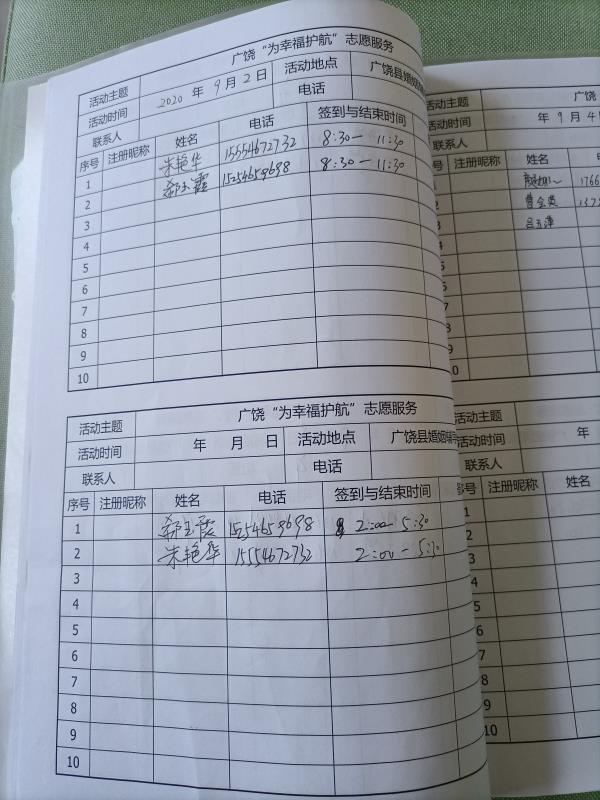 活动主题 广饶“为幸福护航”志愿服务
活动时间 2020 年 9 月 2 日 活动地点 广饶县婚姻
联系人 电话
序号 注册昵称 姓名 电话 签到与结束时间
1 朱艳华 15554672732 8:30-11:30
2 郝玉霞 15254659698 8:30-11:30
3
4
5
6
7
8
9
10
活动主题 广饶“为幸福护航”志愿服务
活动时间 年 月 日 活动地点 广饶县婚姻
联系人 电话
序号 注册昵称 姓名 电话 签到与结束时间
1 郝玉霞 15254659698 2:00-5:30
2 朱艳华 15554672732 2:00-5:30
3
4
5
6
7
8
9
10
活动主题 广饶
活动时间 年 9 月 4
联系人
号 注册昵称 姓名
1766
曹会英
吕玉萍
0
活动主题
活动时间 年
联系人
注册昵称 姓名
1
2
3
4
5
6
7
8
9
10